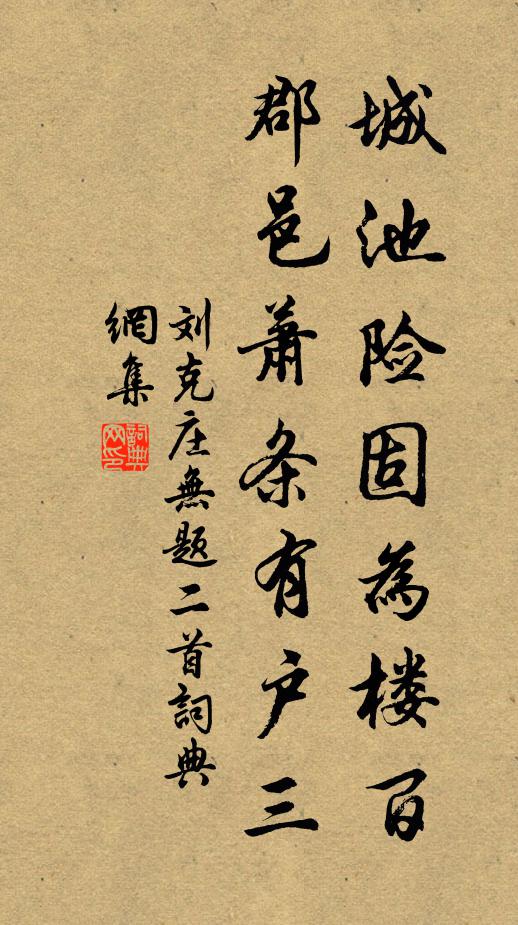 城池险固為楼百
郡邑萧条有户三
刘克庄無题二首詞典
網集
詞典網印